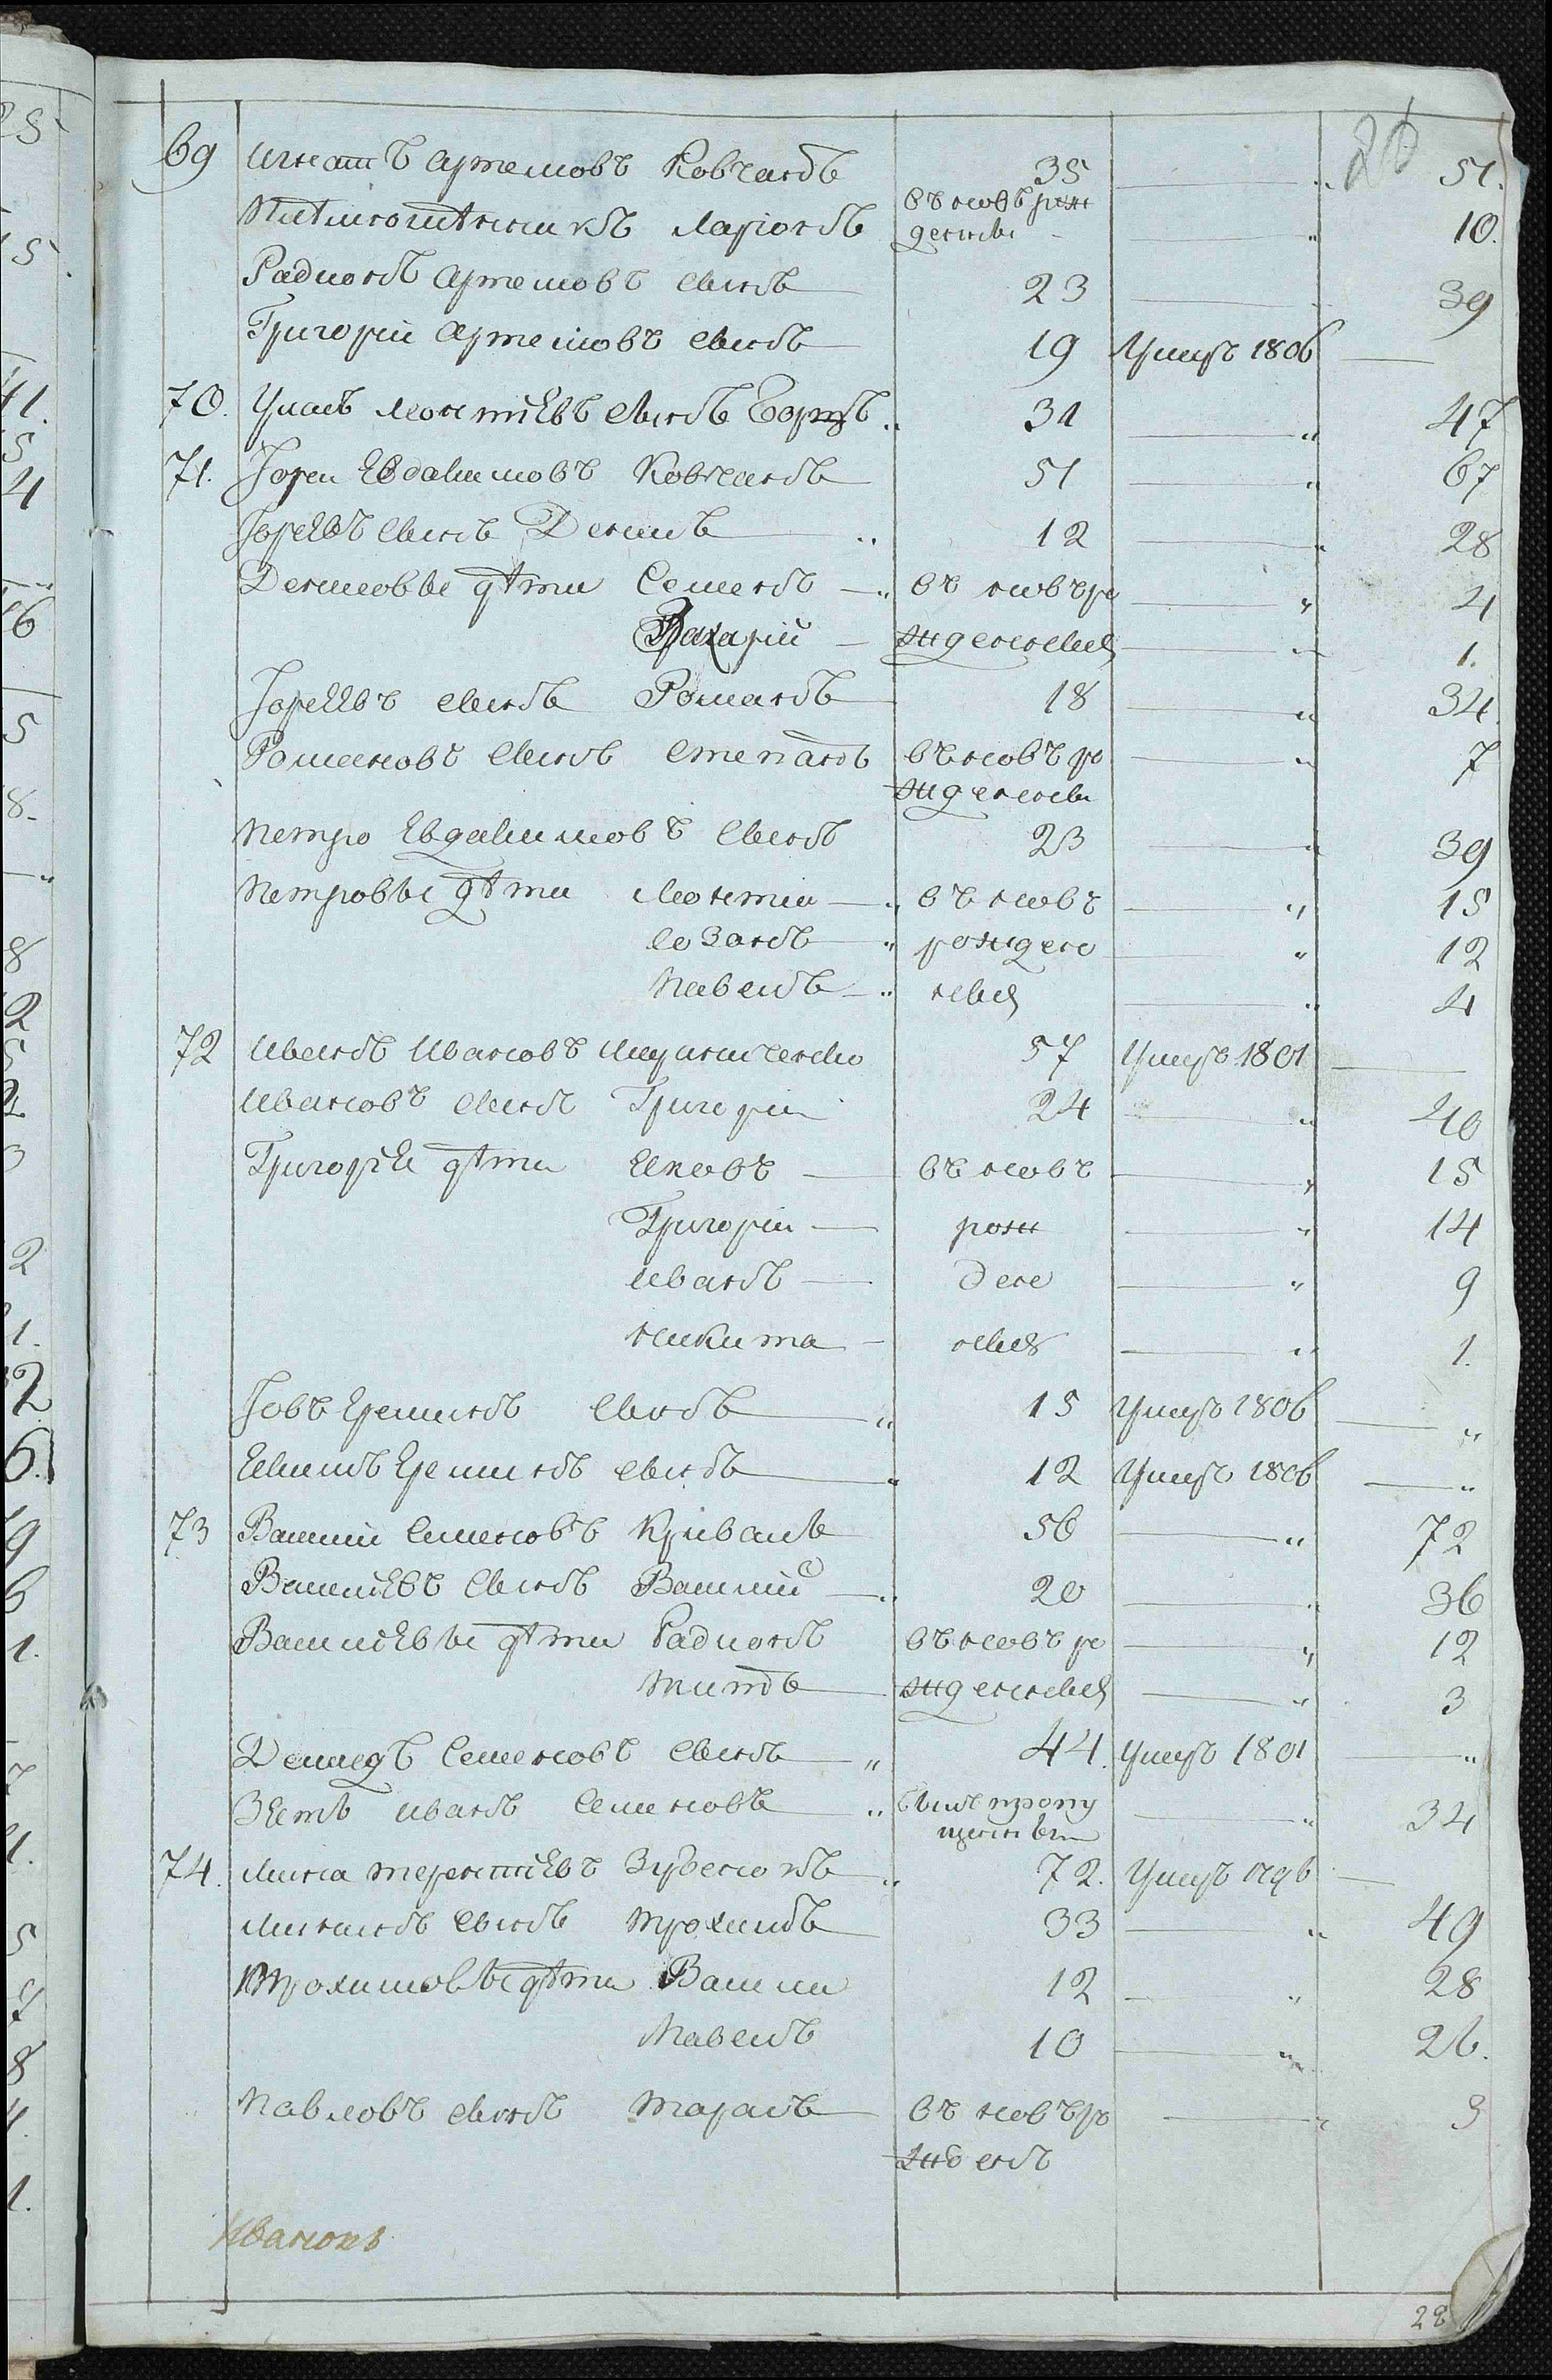 26
69 Игнатъ Артемовъ Ковганъ 35 — 51.
Игнатовъ сынъ Ларіонъ въ новѣ рож — 10.
денны
Радионъ Артемовъ сынъ 23 — 39
Григорій Артемовъ сынъ 19 Умеръ 1806 —
70. Леонтіевъ сынъ 31 — 47
71. Іорей Евдакимовъ Ковганъ 51 — 67
Іореевъ сынъ Денисъ 12 — 28
Денисовые дѣти Семенъ въ новѣ ро — 4
Захарій жденныя — 1.
Іореевъ сынъ Романъ 18 — 34.
Романовъ сынъ Степанъ въ новѣ ро — 7
жденны
Петро Евдакимовъ сынъ 23 — 39
Петровые дѣти Леонтіи въ новѣ — 15
Созонъ рожден — 12
Павелъ ныя — 4
72 Иванъ Ивановъ 57 Умеръ 1801 —
Ивановъ сынъ Григорій 24 — 40
Григорьевы дѣти Яковъ въ новѣ — 15
Григорій рож — 14
Иванъ ден — 9
Никита ныя — 1.
Іовъ Ереминъ сынъ 15 Умеръ 1806 —
Ереминъ сынъ 12 Умеръ 1806 —
73 Василій Семеновъ Криваль 56 — 72
Василіевъ сынъ Василій 20 — 36
Василіевые дѣти Радионъ въ новѣ ро — 12
Титъ жденныя — 3
Демидъ Семеновъ сынъ 44. Умеръ 1801 —
Зять Иванъ Семеновъ былъ пропу — 34
щенны
74. Мина Терентіевъ 72. Умеръ 1796 —
Мининъ сынъ Трохимъ 33 — 49
Трохимовые дѣти Василій 12 — 28
Павелъ 10 — 26.
Павловъ сынъ Тарасъ въ новѣ ро — 3
жденъ
Ивановъ
28